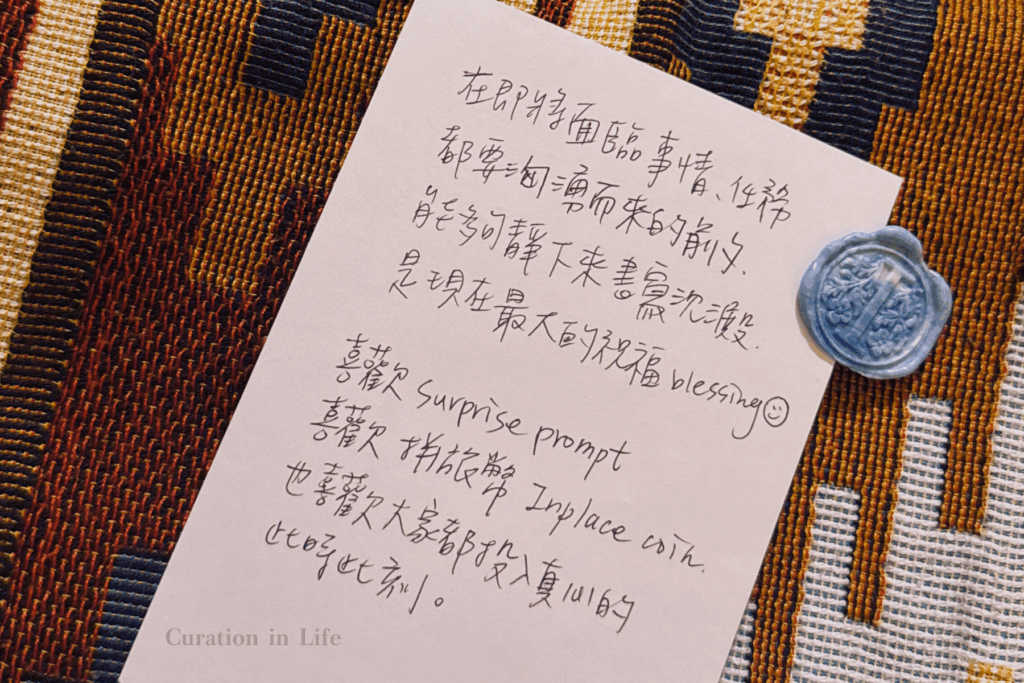 在即將面臨事情、任務
都要洶湧而來的前夕、
能夠靜下來書寫沈澱、
是現在最大的祝福 blessing☺
喜歡 surprise prompt
喜歡 拼旅幣 Inplace coin.
也喜歡大家都投入真心的
此時此刻。
Curation in Life